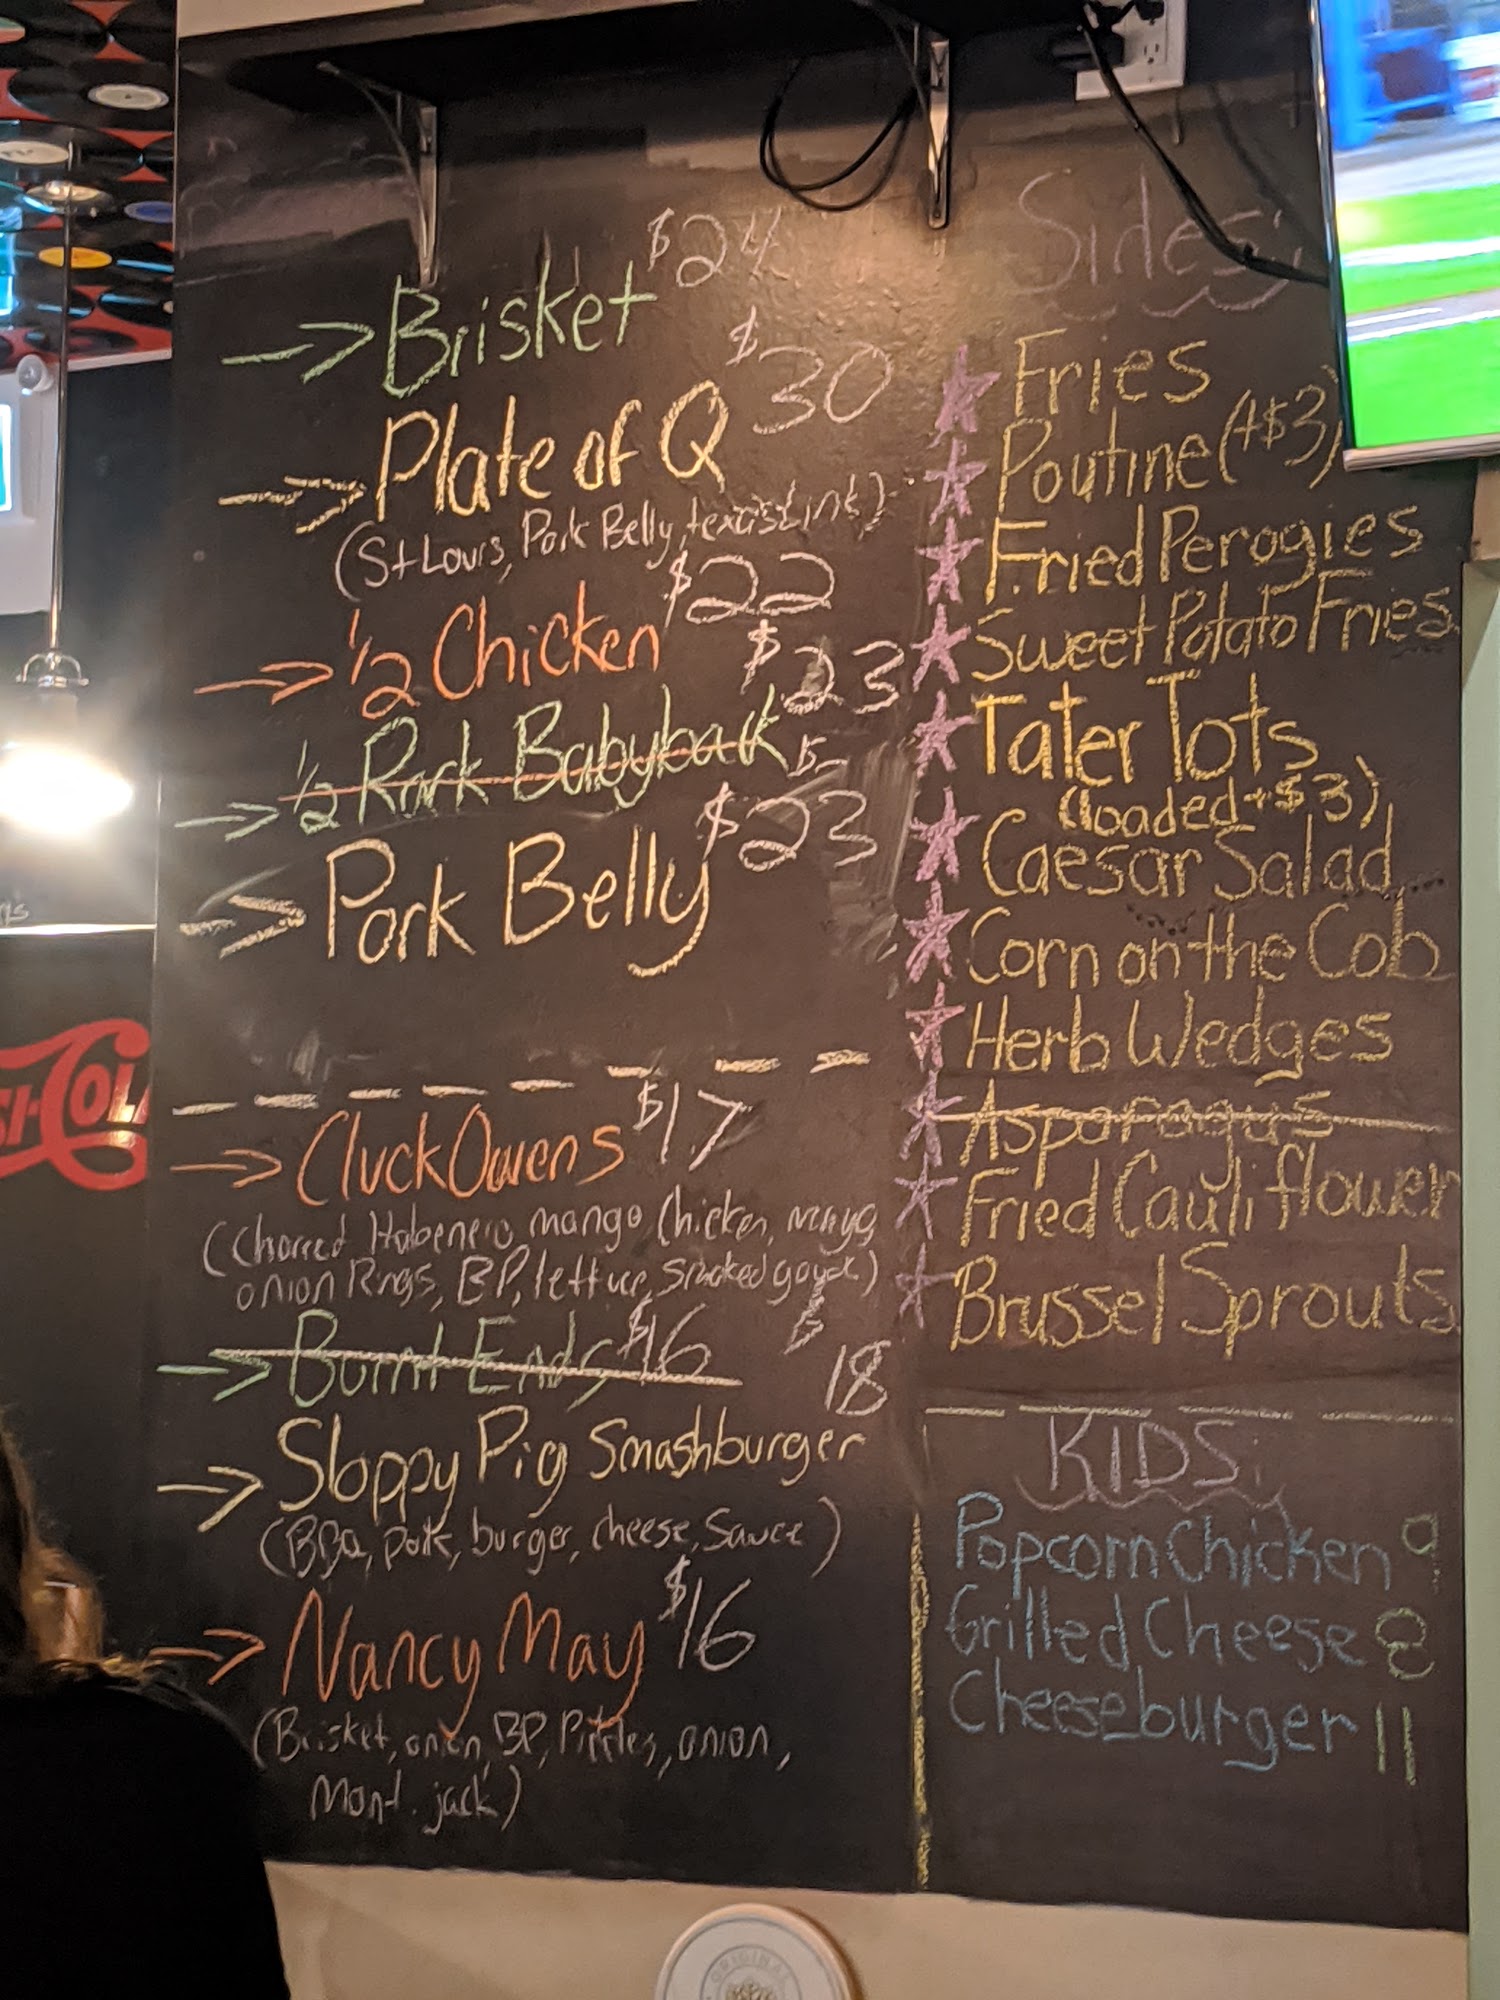 Brisket $24
Plate of Q $30
(St Louis, Pork Belly, texas Link)
1/2 Chicken $22
1/2 Rack Babyback $23
Pork Belly $23
Cluck Owens $17
(Charred Habenero mango Chicken, mayo,
onion Rings, BP, lettuce, smoked gouda)
Burnt Ends $16
Sloppy Pig Smashburger 18
(BBQ, pork, burger, cheese, Sauce)
Nancy May $16
(Brisket, onion, BP, Pickles, onion,
Mont. jack)
Sides:
Fries
Poutine (+$3)
Fried Perogies
Sweet Potato Fries
Tater Tots
(loaded +$3)
Caesar Salad
Corn on the Cob
Herb Wedges
Asparagus
Fried Cauliflower
Brussel Sprouts
KIDS:
Popcorn Chicken 9
Grilled Cheese 8
Cheeseburger 11
SI-COLA
ORIGINAL